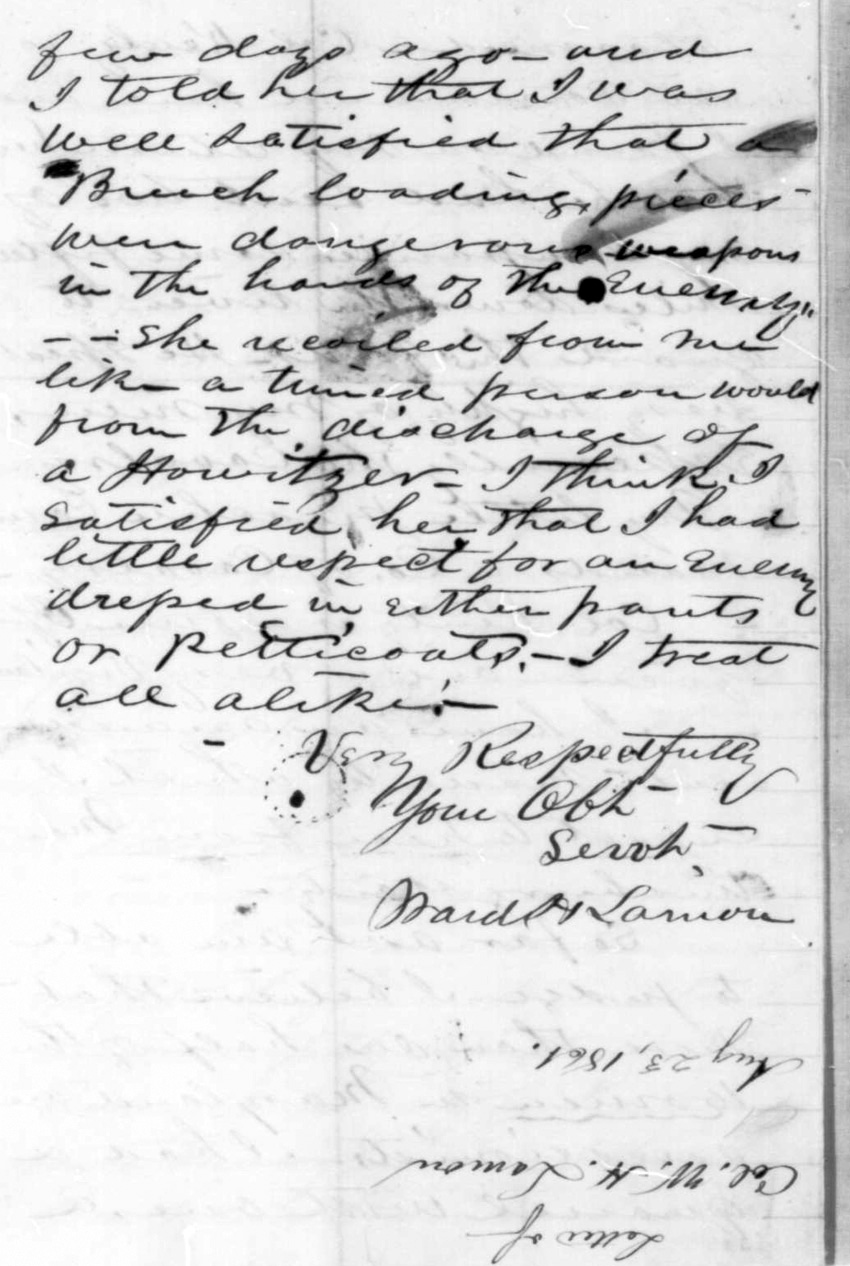 few days ago – and
I told her that I was
well satisfied that a
"Breech loading pieces
were dangerous weapons
in the hands of the Enemy"
– – She recoiled from me
like a timid person would
from the discharge of
a Howitzer – I think I
satisfied her that I had
little respect for an Enemy
dressed in either pants
or petticoats. – I treat
all alike! –
Very Respectfully
Your Obt
Servt
Ward H Lamon
Letter of
Col. W. H. Lamon
Aug 23, 1861.